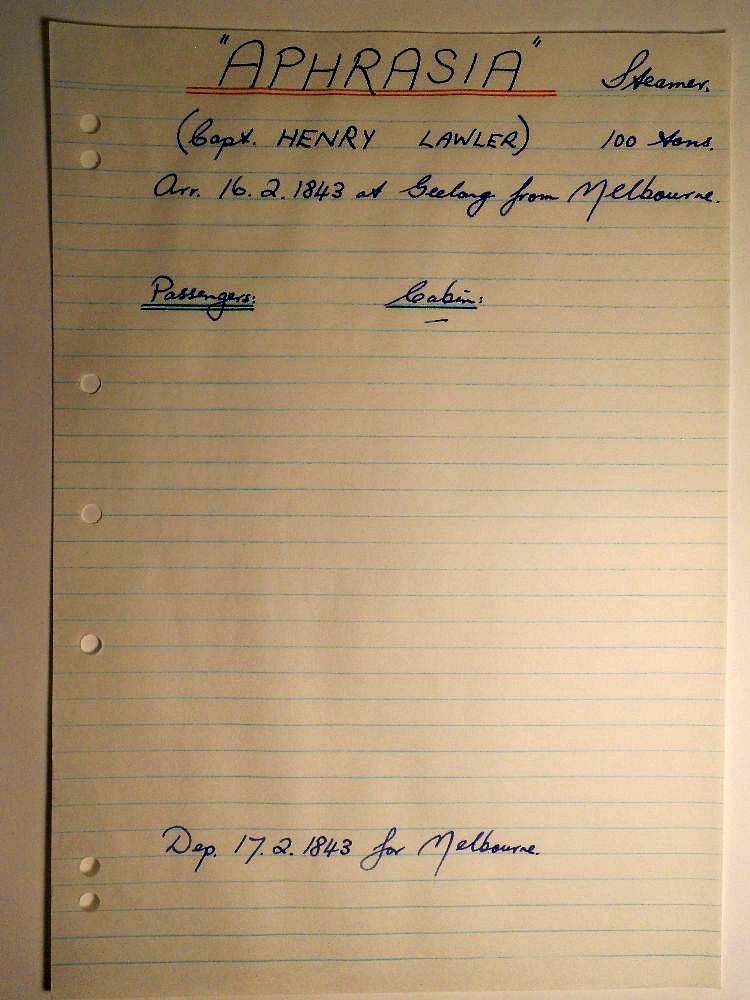 "APHRASIA" Steamer.
(Capt. HENRY LAWLER) 100 tons.
Arr. 16.2.1843 at Geelong from Melbourne.
Passengers: Cabin:
—
Dep. 17.2.1843 for Melbourne.